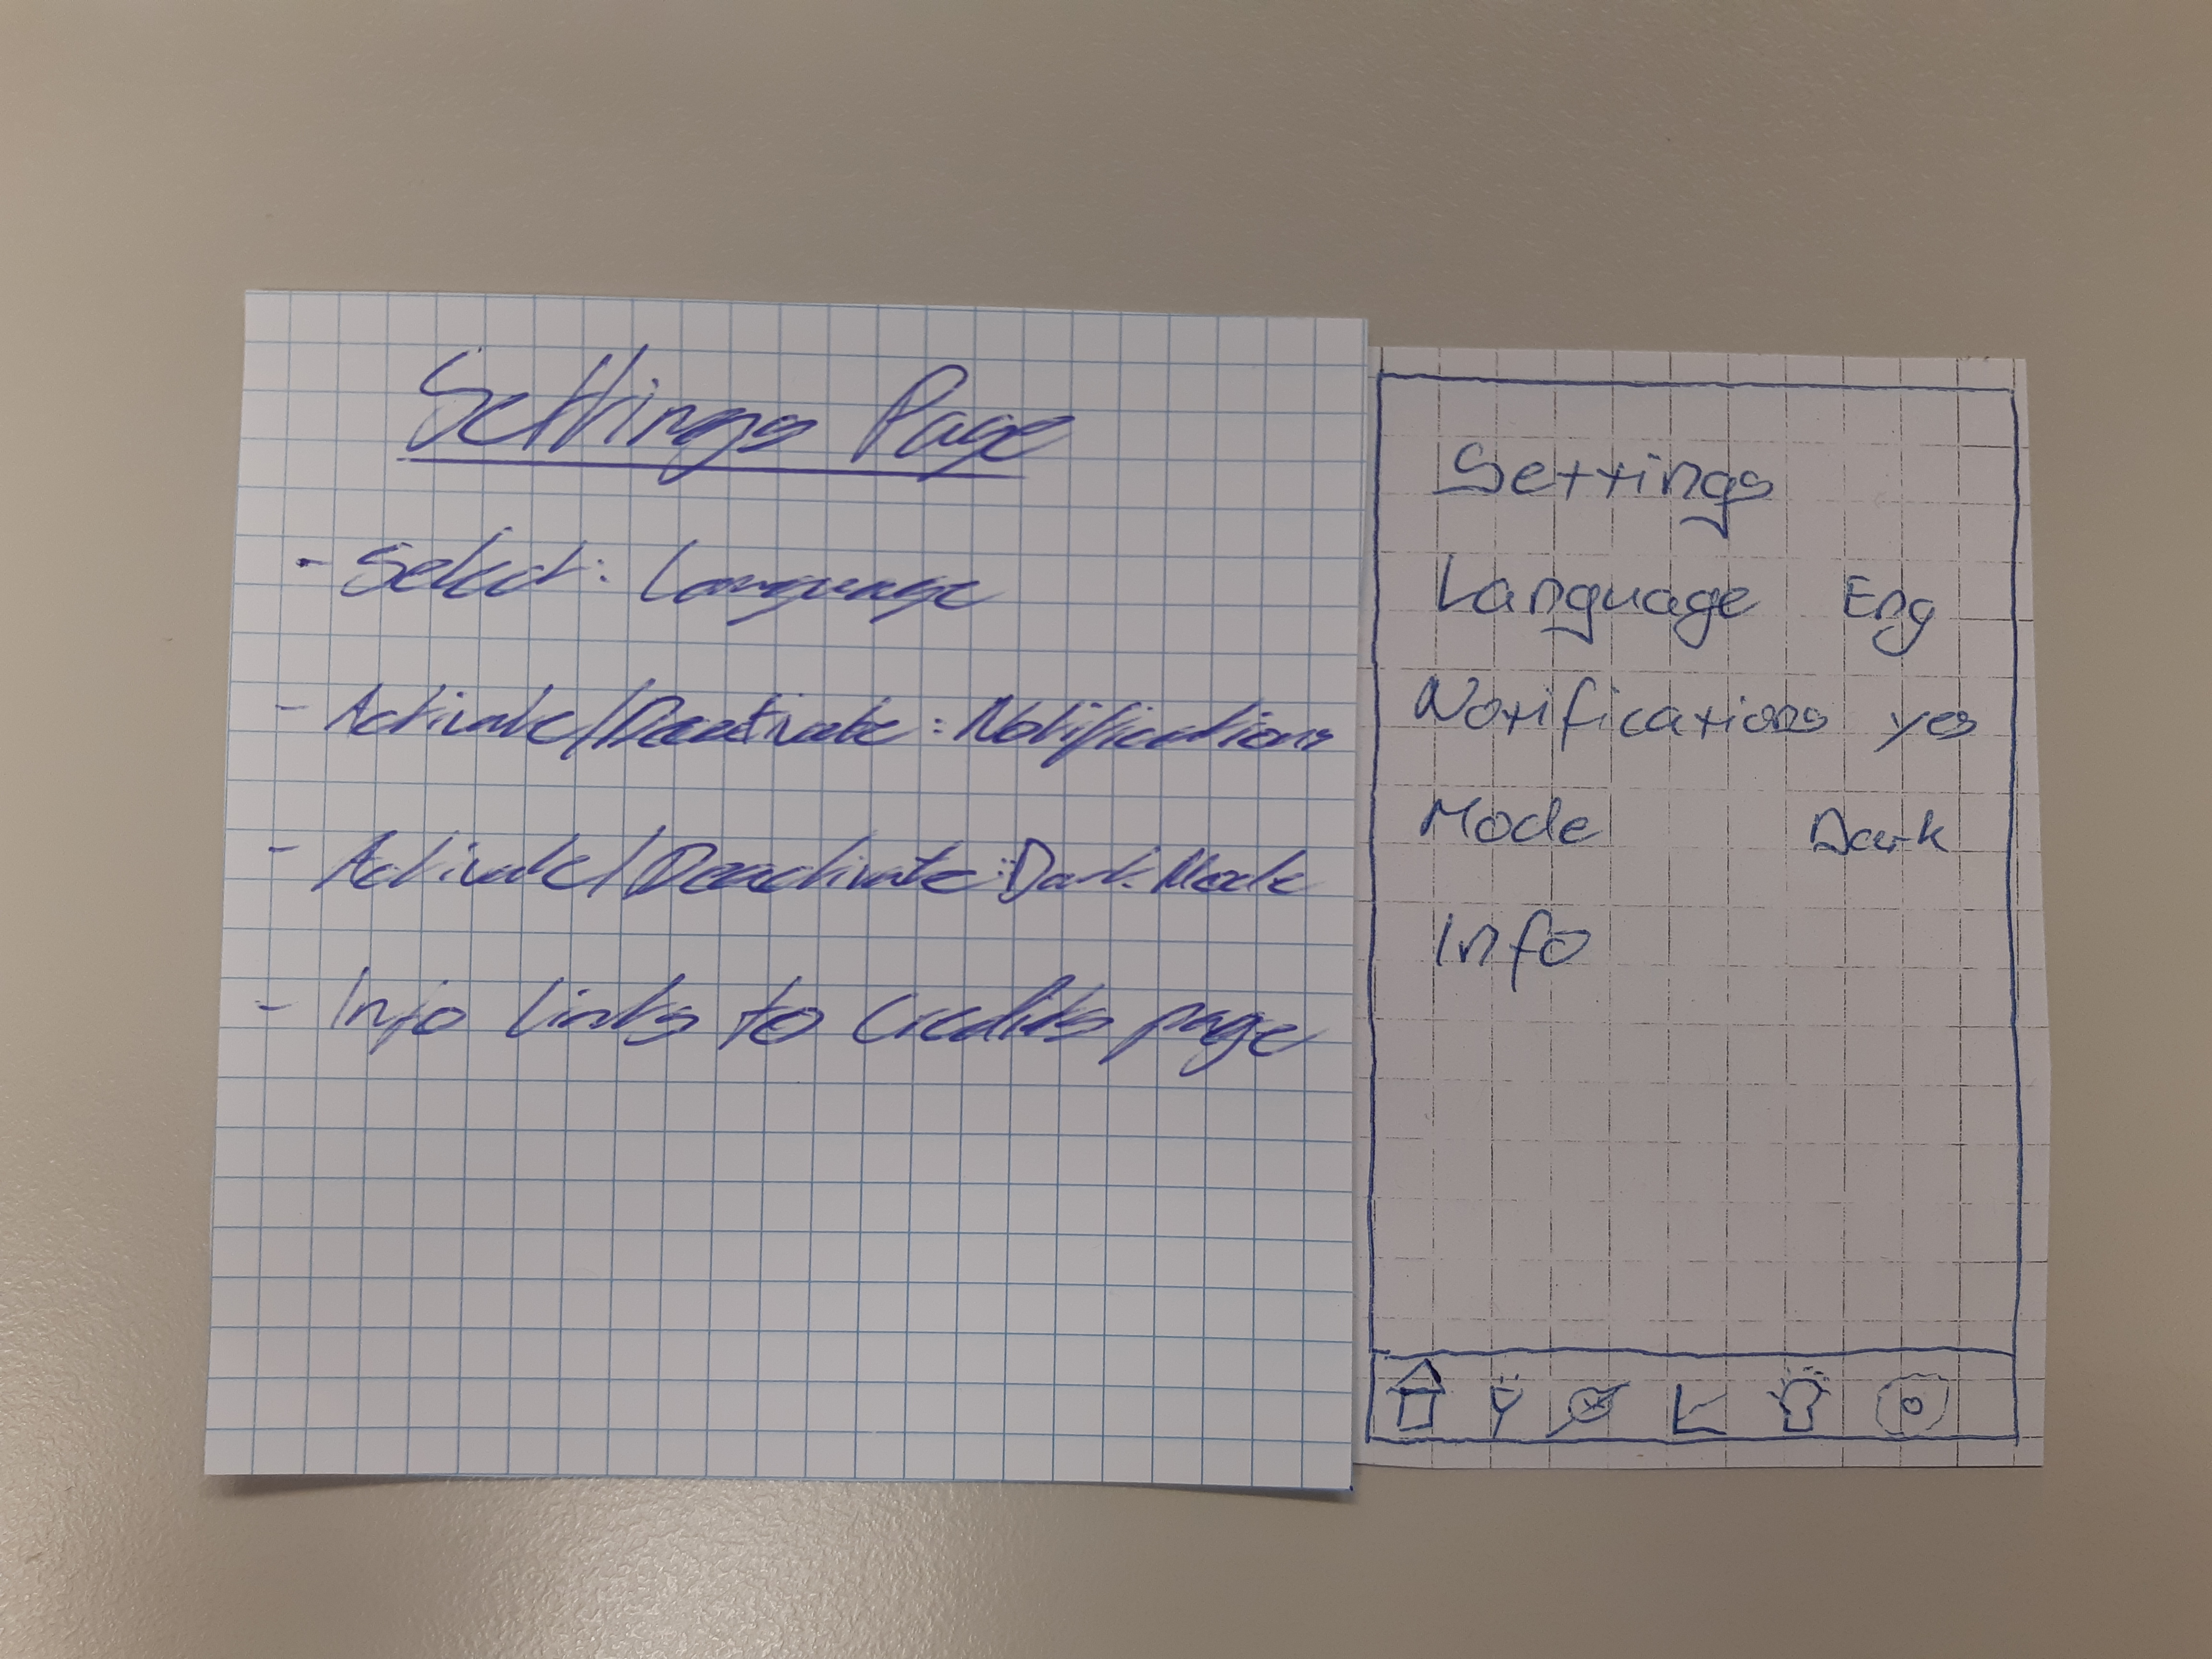 Settings Page
- Select: Language
- Activate/Deactivate: Notifications
- Activate/Deactivate: Dark Mode
- Info links to credits page
Settings
Language Eng
Notifications yes
Mode Dark
Info